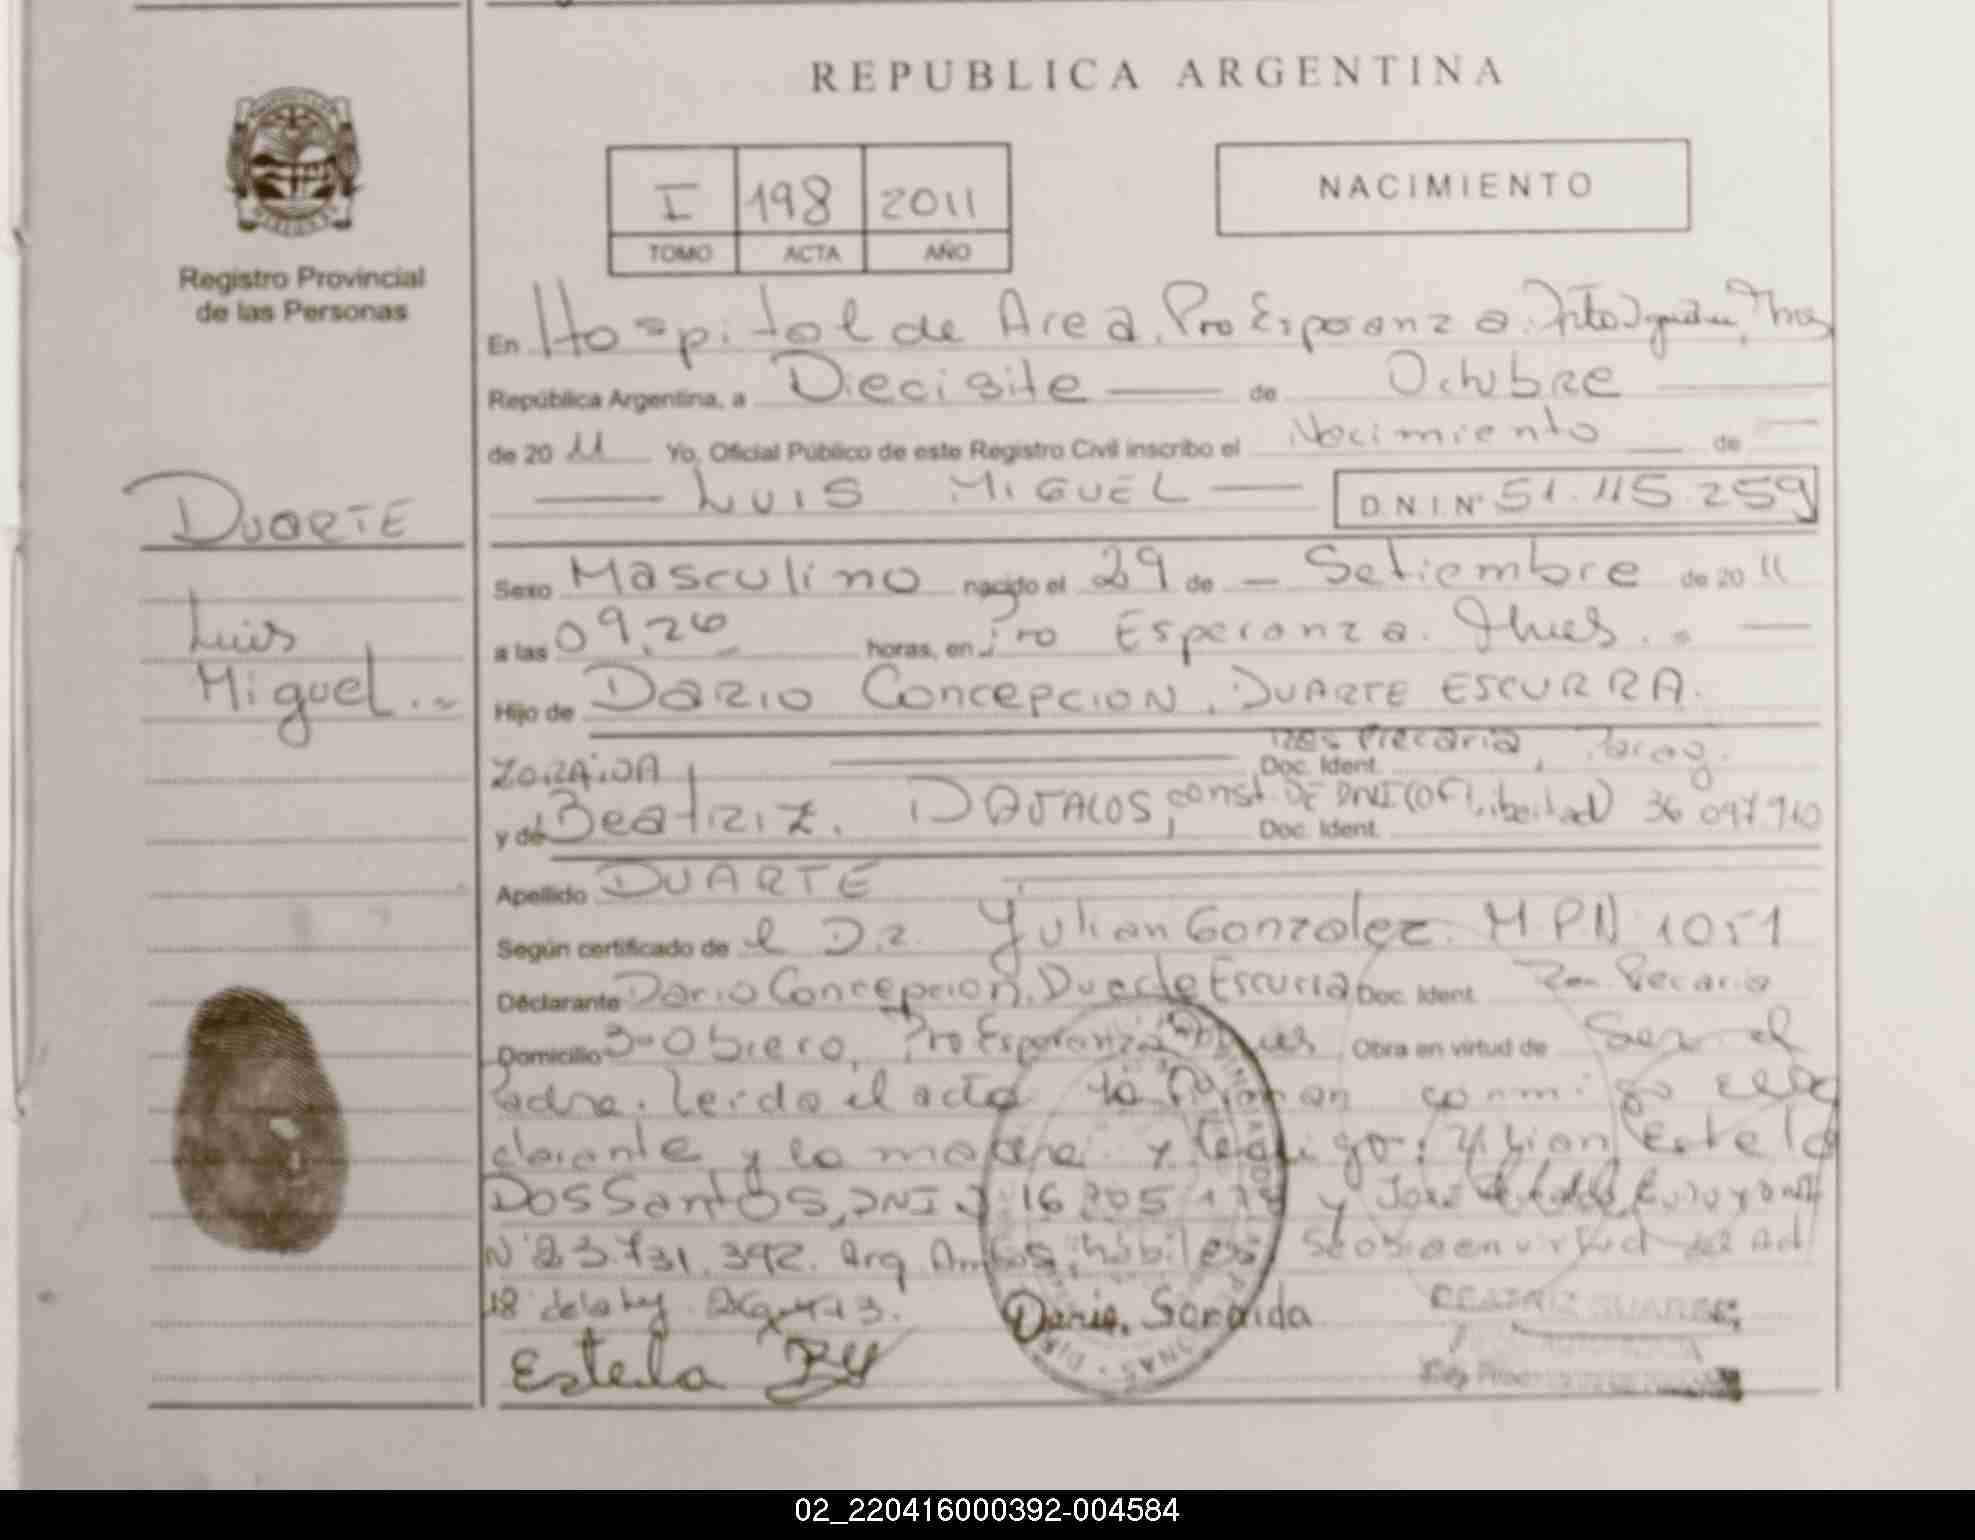 REPUBLICA ARGENTINA
I 198 2011
TOMO ACTA AÑO
NACIMIENTO
Registro Provincial
de las Personas
En Hospital de Area, Pto Esperanza.
República Argentina, a Diecisite de Octubre
de 20 11 Yo, Oficial Público de este Registro Civil inscribo el Nacimiento de
LUIS MIGUEL D.N.I.Nº 51.115.259
DUARTE
Luis
Miguel.
Sexo Masculino nacido el 29 de Setiembre de 20 11
a las 09,26 horas, en Pto Esperanza.
Hijo de DARIO CONCEPCION, DUARTE ESCURRA.
Res Precaria, Parag.
ZORAIDA Doc. Ident.
y de Beatriz. DAVALOS, const. DE DNI
Doc. Ident.
Apellido DUARTE
Según certificado de el Dr. Yulian Gonzalez. M.P.N 1051
Declarante Dario Concepcion, Duarte Escurra Doc. Ident. Precaria
Domicilio Bº Obrero, Pto Esperanza Obra en virtud de Ser el
Padre. Leido el acta la Firman conmigo el de
clarante y la madre y testigo: Estela
DosSantos, DNI 16 y José
Nº 23.731.392. Arg Ambos hábiles. Se obra en virtud del Art
18 de la ley.
Dario. Soraida
BEATRIZ SUAREZ
Estela
02_220416000392-004584